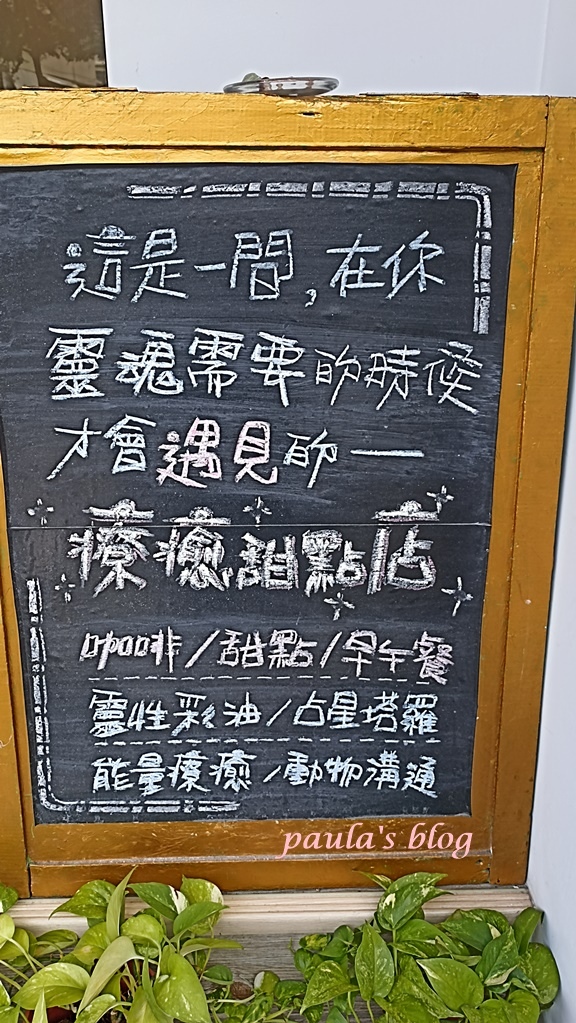 這是一間,在你
靈魂需要的時候
才會遇見的一
療癒甜點店
咖啡/甜點/早午餐
靈性彩油/占星塔羅
能量療癒/動物溝通
paula's blog